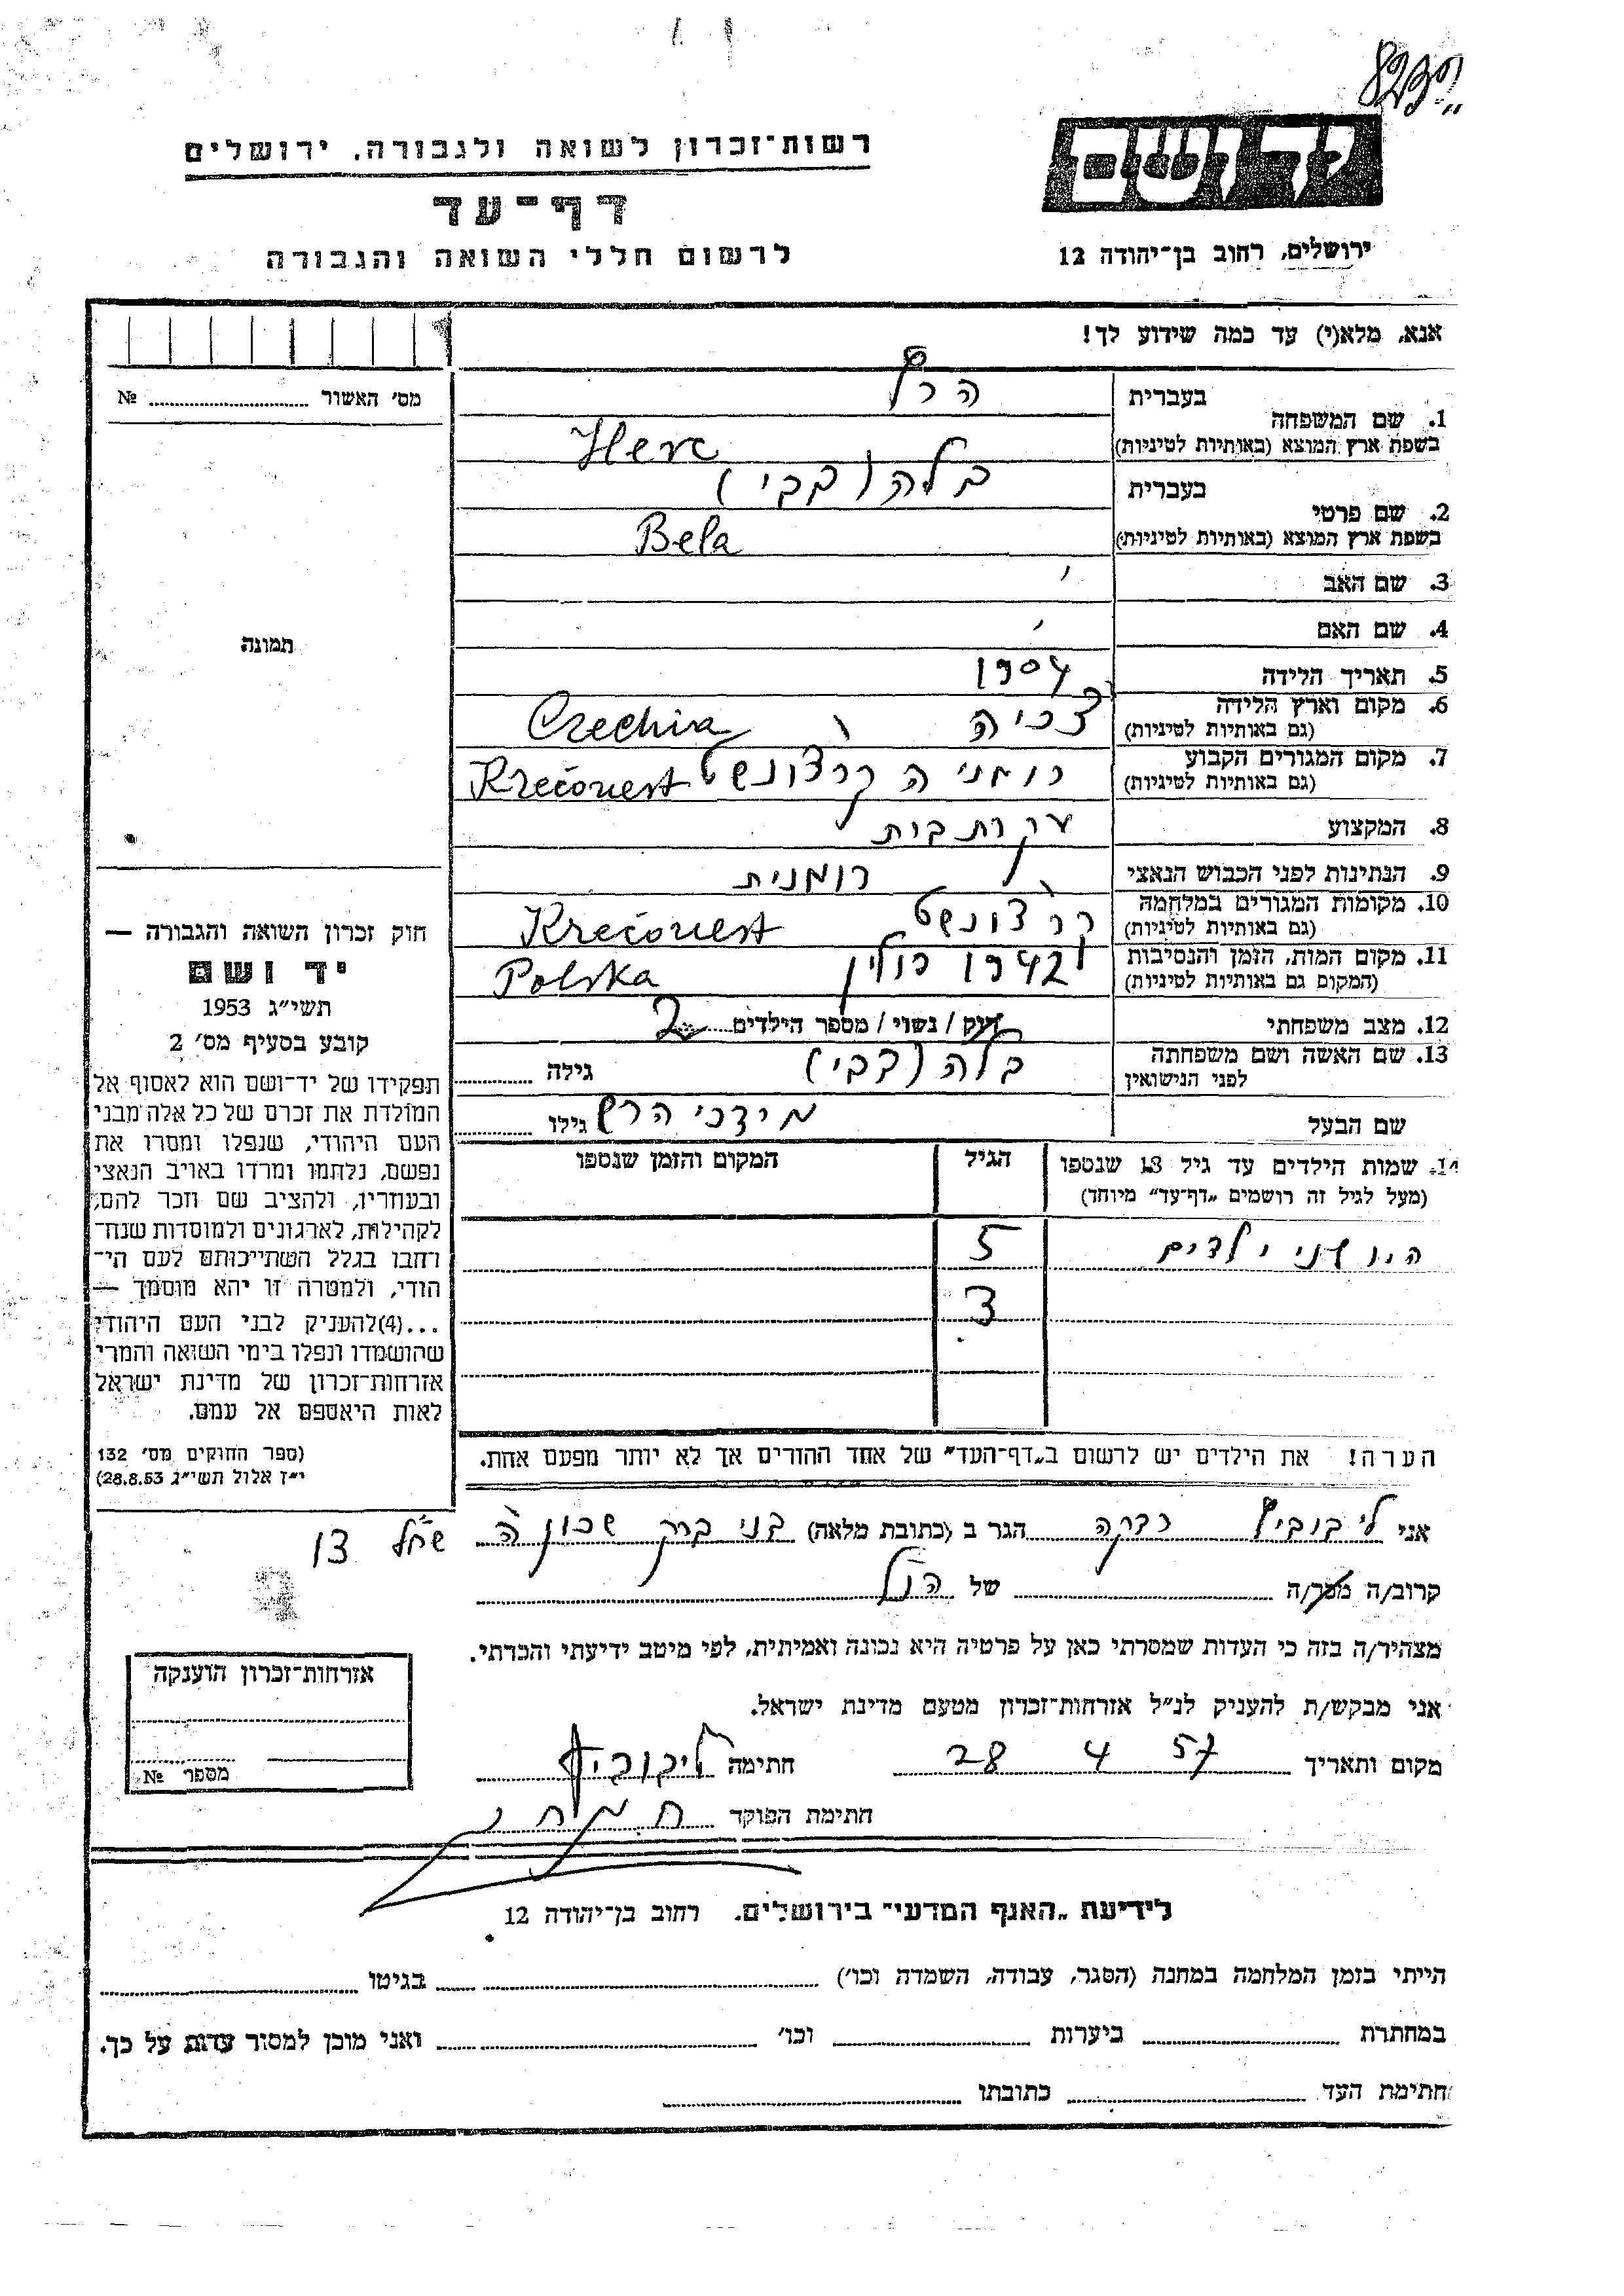 רשות־זכרון לשואה ולגבורה. ירושלים
דף־עד
לרשום חללי השואה והגבורה
יד ושם
ירושלים, רחוב בן־יהודה 12
אנא, מלא(י) עד כמה שידוע לך!
מס׳ האשור № 
1. שם המשפחה
בעברית
בשפת ארץ המוצא (באותיות לטיניות)
2. שם פרטי
בעברית בלה
בשפת ארץ המוצא (באותיות לטיניות) Bela
3. שם האב
4. שם האם
5. תאריך הלידה 1904
6. מקום וארץ הלידה
(גם באותיות לטיניות) Czechia
7. מקום המגורים הקבוע
(גם באותיות לטיניות) רומניה Krečonešt
8. המקצוע עקרת בית
9. הנתינות לפני הכבוש הנאצי רומנית
10. מקומות המגורים במלחמה
(גם באותיות לטיניות) Krečonešt
11. מקום המות, הזמן והנסיבות
(המקום גם באותיות לטיניות) 1942 פולין Polska
12. מצב משפחתי רוק / נשוי / מספר הילדים 2
13. שם האשה ושם משפחתה
לפני הנישואין בלה גילה
שם הבעל גילו
14. שמות הילדים עד גיל 18 שנספו
(מעל לגיל זה רושמים „דף־עד״ מיוחד)
הגיל
המקום והזמן שנספו
היו שני ילדים 5
3
הערה! את הילדים יש לרשום ב„דף־העד״ של אחד ההורים אך לא יותר מפעם אחת.
תמונה
חוק זכרון השואה והגבורה —
יד ושם
תשי״ג 1953
קובע בסעיף מס׳ 2
תפקידו של יד־ושם הוא לאסוף אל
המולדת את זכרם של כל אלה מבני
העם היהודי, שנפלו ומסרו את
נפשם, נלחמו ומרדו באויב הנאצי
ובעוזריו, ולהציב שם וזכר להם,
לקהילות, לארגונים ולמוסדות שנח־
רבו בגלל השתייכותם לעם הי־
הודי, ולמטרה זו יהא מוסמך —
...(4)להעניק לבני העם היהודי
שהושמדו ונפלו בימי השואה והמרי
אזרחות־זכרון של מדינת ישראל
לאות היאספם אל עמם.
(ספר החוקים מס׳ 132
י״ז אלול תשי״ג 28.8.53)
אני ליבוביץ הגר ב (כתובת מלאה) בני ברק שכון ה
קרוב/ה מכר/ה של הנ״ל
מצהיר/ה בזה כי העדות שמסרתי כאן על פרטיה היא נכונה ואמיתית, לפי מיטב ידיעתי והכרתי.
אני מבקש/ת להעניק לנ״ל אזרחות־זכרון מטעם מדינת ישראל.
מקום ותאריך 28 4 57 חתימה ליבוביץ
חתימת הפוקד
אזרחות־זכרון הוענקה
מספר №
לידיעת „האגף המדעי״ בירושלים. רחוב בן־יהודה 12
הייתי בזמן המלחמה במחנה (הסגר, עבודה, השמדה וכו׳) בגיטו
במחתרת ביערות וכו׳ ואני מוכן למסור עדות על כך.
חתימת העד כתובתו